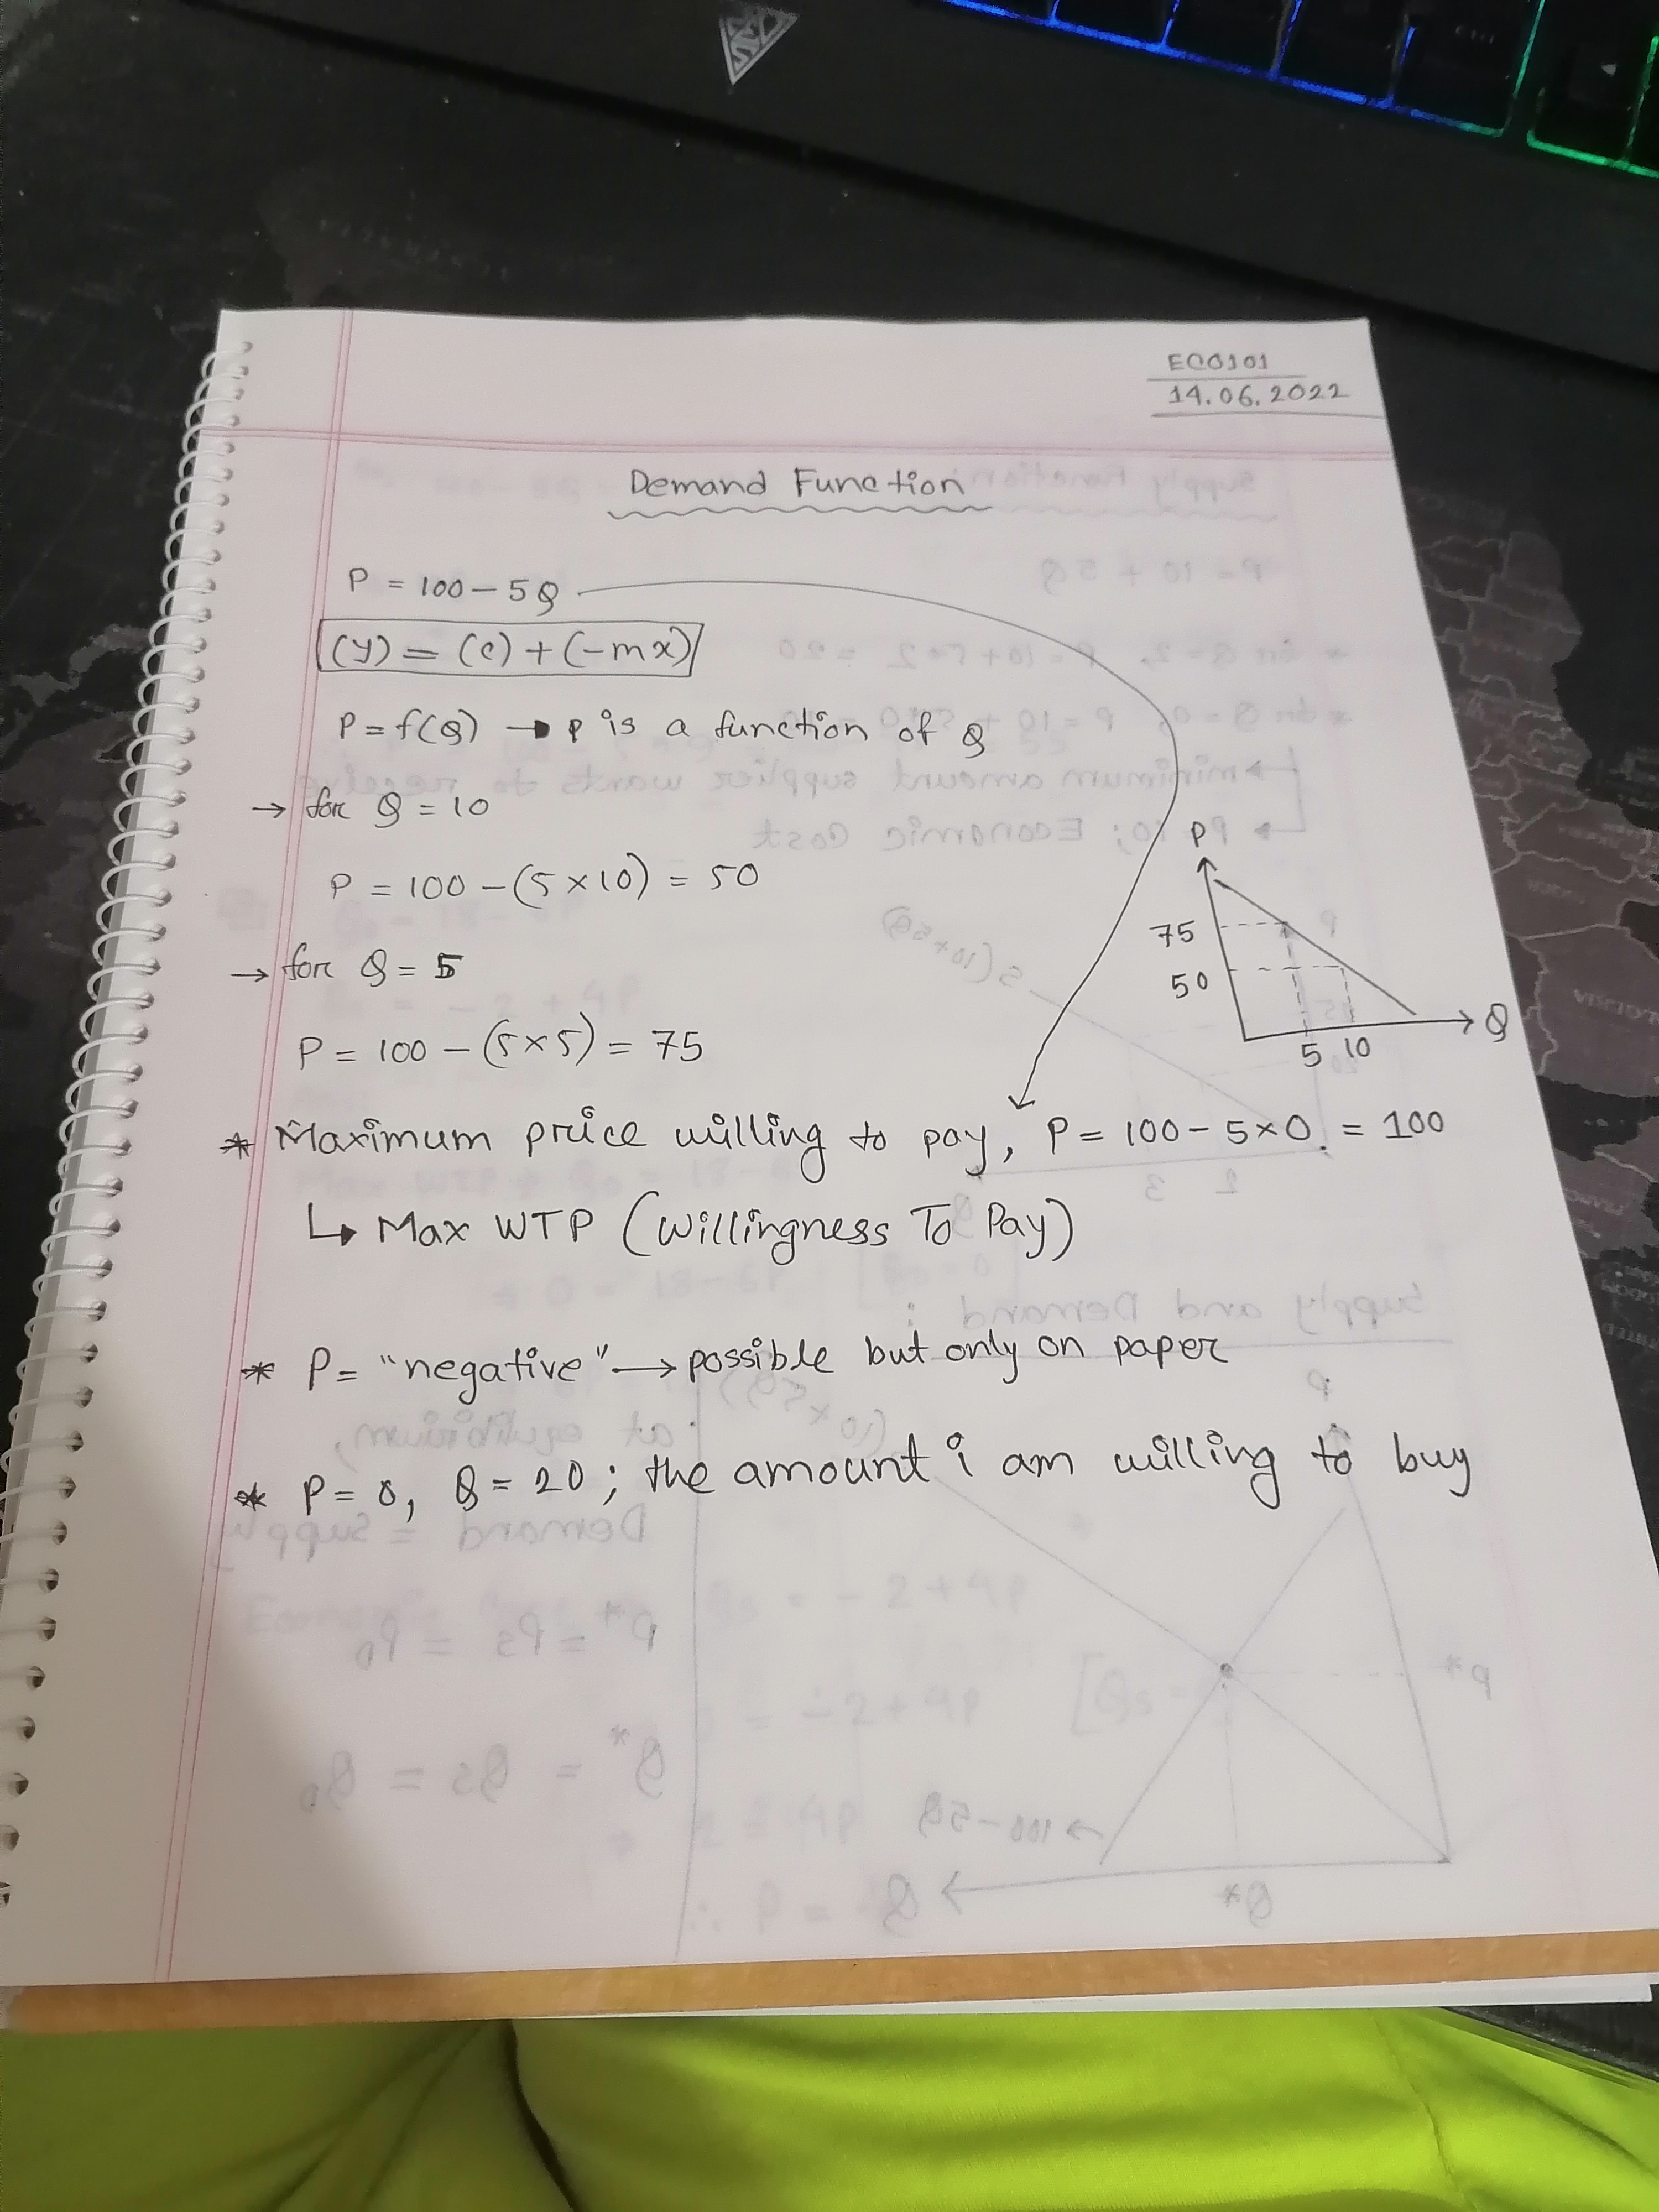 ECO101
14.06.2022
Demand Function
P = 100 - 5Q
(y) = (c) + (-mx)
P = f(Q) → P is a function of Q
→ for Q = 10
P = 100 - (5 × 10) = 50
→ for Q = 5
P = 100 - (5 × 5) = 75
P
75
50
5 10
Q
* Maximum price willing to pay, P = 100 - 5 × 0. = 100
↳ Max WTP (Willingness To Pay)
* P = "negative" → possible but only on paper
* P = 0, Q = 20; the amount i am willing to buy